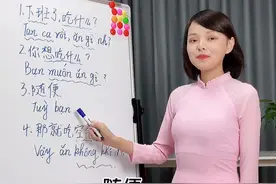 1.下班了,吃什么?
Tan ca rồi, ăn gì nhỉ?
2.你想吃什么?
Bạn muốn ăn gì?
3.随便
Tuỳ bạn
4.那就吃空
Vậy ăn không khí
随便